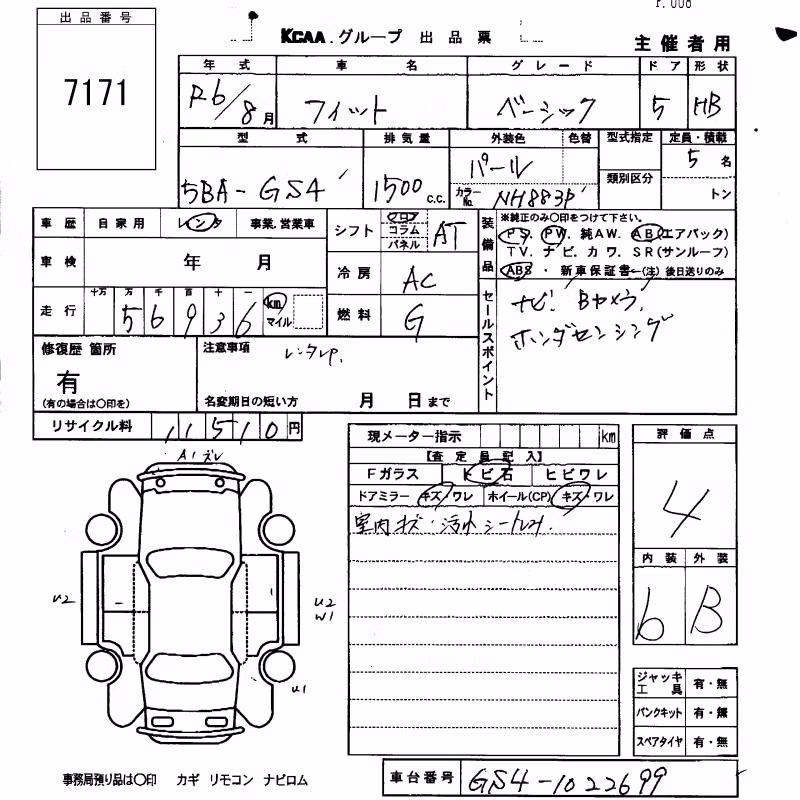 P. 008
出品番号
7171
KCAA.グループ 出品票
主催者用
年式 車名 グレード ドア 形状
R6/8月 フィット ベーシック 5 HB
型式 排気量 外装色 色替 型式指定 定員・積載
5BA-GS4 1500 c.c. パール 類別区分 5名
カラーNo. NH883P トン
車歴 自家用 レンタ 事業.営業車
シフト フロア コラム パネル AT
装備品 ※純正のみ〇印をつけて下さい。
PS. PW. 純AW. AB(エアバック)
TV. ナビ. カワ. SR(サンルーフ)
ABS ・ 新車保証書←(注)後日送りのみ
車検 年 月
冷房 AC
走行 十万 万 千 百 十 一
56936 km マイル
燃料 G
セールスポイント
ナビ. Bカメラ.
ホンダセンシング
修復歴 箇所
有
(有の場合は〇印を)
注意事項
名変期日の短い方 月 日まで
リサイクル料 11510円
現メーター指示 km
【査定員記入】
Fガラス トビ石 ヒビワレ
ドアミラー キズ・ワレ ホイール(CP) キズ・ワレ
室内キズ・汚れ
評価点
4
内装 外装
6 B
A1 ズレ
U2
U2
W1
U1
ジャッキ工具 有・無
パンクキット 有・無
スペアタイヤ 有・無
事務局預り品は〇印 カギ リモコン ナビロム
車台番号 GS4-1022699